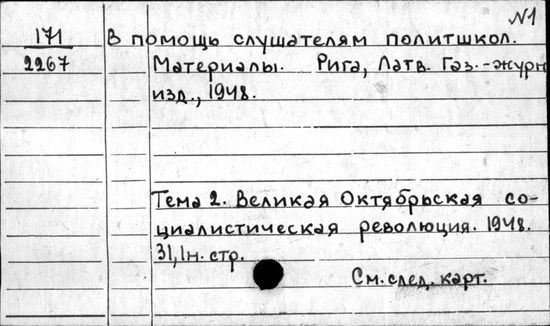 N1
171 В помощь слушателям политшкол.
2267 Материалы. Рига, Латв. Газ.-журн
изд., 1948.
Тема 2. Великая Октябрьская со-
циалистическая революция. 1948.
31,1н. стр.
См. след. карт.